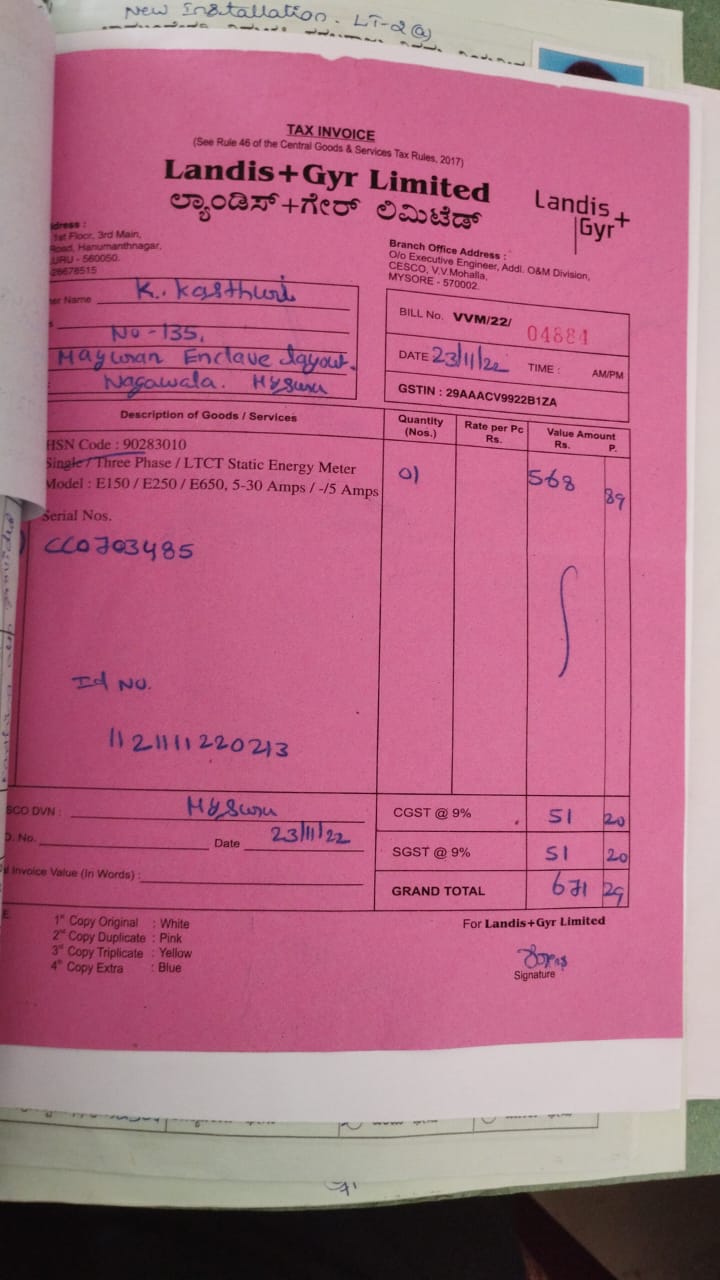 New Installation. LT-2(a)
TAX INVOICE
(See Rule 46 of the Central Goods & Services Tax Rules, 2017)
Landis+Gyr Limited
ಲ್ಯಾಂಡಿಸ್+ಗೇರ್ ಲಿಮಿಟೆಡ್
Landis+
Gyr
ddress :
1st Floor, 3rd Main,
Road, Hanumanthnagar,
URU - 560050.
26678515
Branch Office Address :
O/o Executive Engineer, Addl. O&M Division,
CESCO, V.V.Mohalla,
MYSORE - 570002.
er Name K. Kasthuri
No-135,
Mayuran Enclave layout.
Nagawala. Mysuru
BILL No. VVM/22/ 04884
DATE 23/11/22 TIME : AM/PM
GSTIN : 29AAACV9922B1ZA
Description of Goods / Services Quantity (Nos.) Rate per Pc Rs. Value Amount Rs. P.
HSN Code : 90283010
Single / Three Phase / LTCT Static Energy Meter
Model : E150 / E250 / E650, 5-30 Amps / -/5 Amps 01 568 89
Serial Nos.
CC0703485
Id No.
1121111220213
SCO DVN : Mysuru
CGST @ 9% 51 20
. No. Date 23/11/22
SGST @ 9% 51 20
l Invoice Value (In Words) :
GRAND TOTAL 671 29
E
1st Copy Original : White
2nd Copy Duplicate : Pink
3rd Copy Triplicate : Yellow
4th Copy Extra : Blue
For Landis+Gyr Limited
Signature